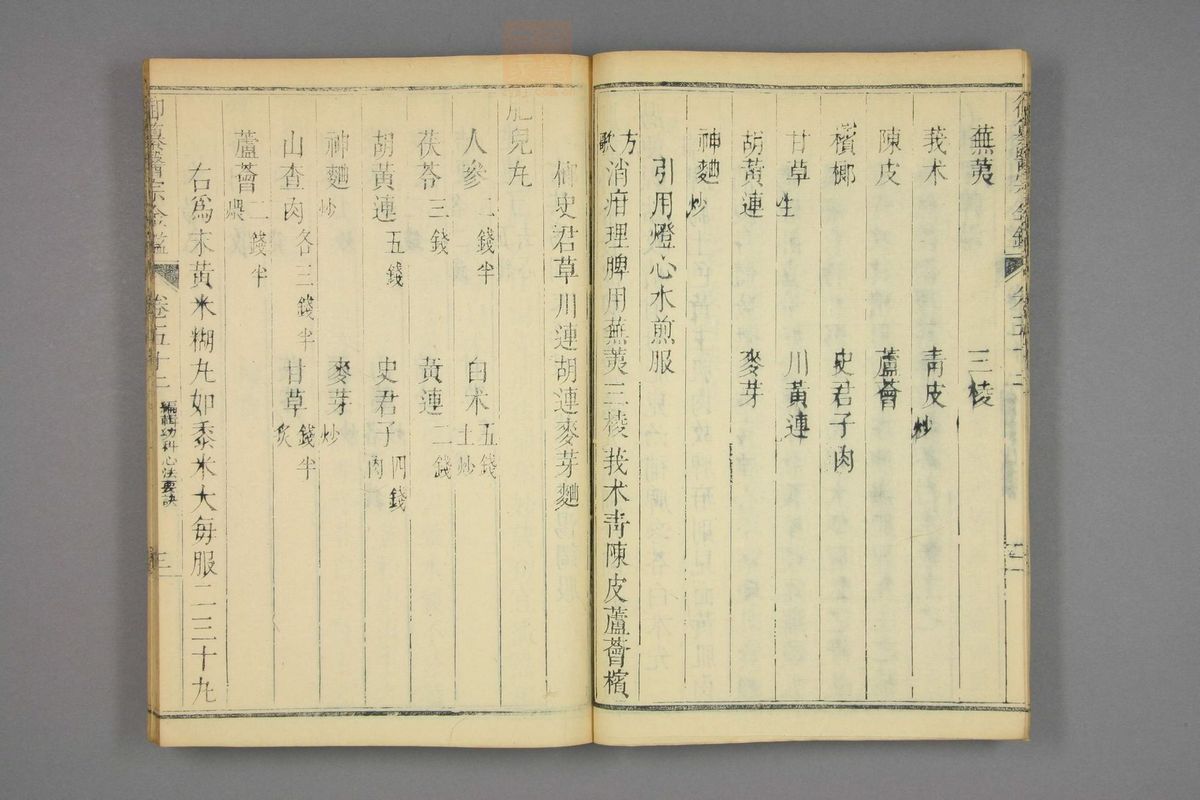 蕪荑 三稜
莪朮 青皮炒
陳皮 蘆薈
檳榔 史君子肉
甘草生 川黃連
胡黃連 麥芽
神麯炒
引用燈心水煎服
方歌 消疳理脾用蕪荑三稜莪朮青陳皮蘆薈檳
榔史君草川連胡連麥芽麯
肥兒丸
人參二錢半 白朮五錢土炒
茯苓三錢 黃連二錢
胡黃連五錢 史君子肉四錢
神麯炒 麥芽炒
山查肉各三錢半 甘草炙錢半
蘆薈二錢半煨
右為末黃米糊丸如黍米大每服二三十丸
御纂醫宗金鑑 卷五十二 編輯幼科心法要訣 三